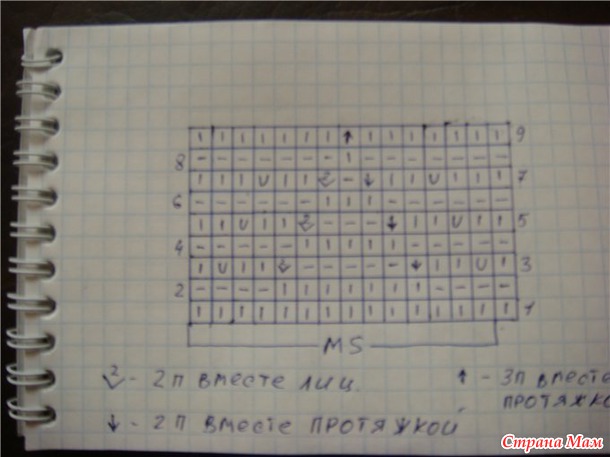 I I I I I I I ↑ I I I I I I I 9
8 – – – – – – – I – – – – – – –
I I I U I I 2✓ – ↓ I I U I I I 7
6 – – – – – – I I I – – – – – –
I I U I I 2✓ – – – ↓ I I U I I 5
4 – – – – – I I I I I – – – – –
I U I I 2✓ – – – – – ↓ I I U I 3
2 – – – – I I I I I I I – – – –
I I I I I I I I I I I I I I I 1
MS
2✓ - 2п вместе лиц. ↑ - 3п вместе
↓ - 2 п вместе протяжкой протяжко
Страна Мам